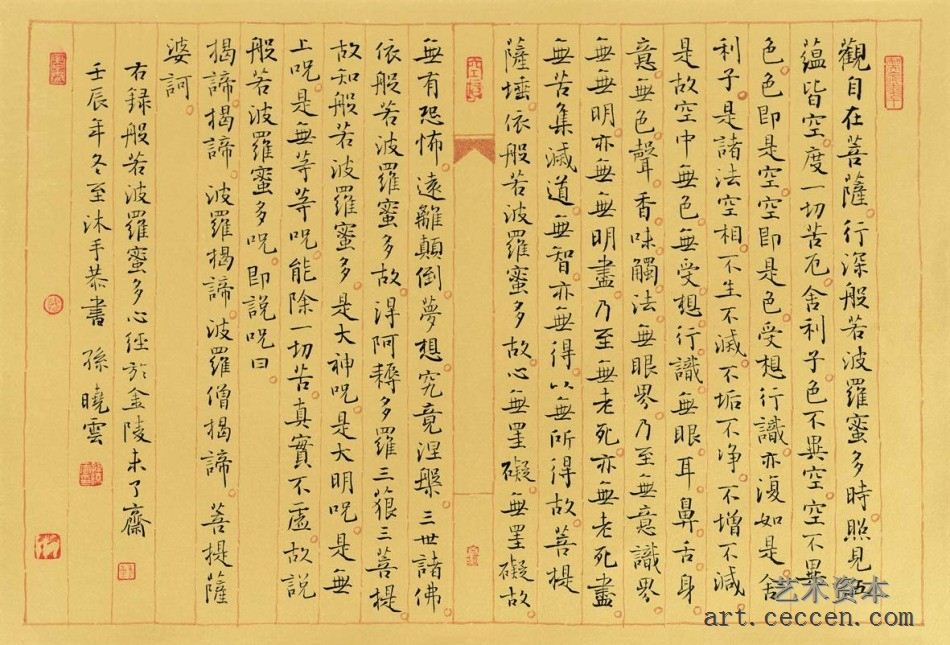 觀自在菩薩行深般若波羅蜜多時照見五
蘊皆空度一切苦厄舍利子色不異空空不異
色色即是空空即是色受想行識亦復如是舍
利子是諸法空相不生不滅不垢不净不增不減
是故空中無色無受想行識無眼耳鼻舌身
意無色聲香味觸法無眼界乃至無意識界
無無明亦無無明盡乃至無老死亦無老死盡
無苦集滅道無智亦無得以無所得故菩提
薩埵依般若波羅蜜多故心無罣礙無罣礙故
無有恐怖遠離顛倒夢想究竟涅槃三世諸佛
依般若波羅蜜多故得阿耨多羅三藐三菩提
故知般若波羅蜜多是大神呪是大明呪是無
上呪是無等等呪能除一切苦真實不虛故說
般若波羅蜜多呪即說呪曰
揭諦揭諦 波羅揭諦 波羅僧揭諦 菩提薩
婆訶
右録般若波羅蜜多心經於金陵未了齋
壬辰年冬至沐手恭書 孫曉雲
艺术资本
art.ceccen.com